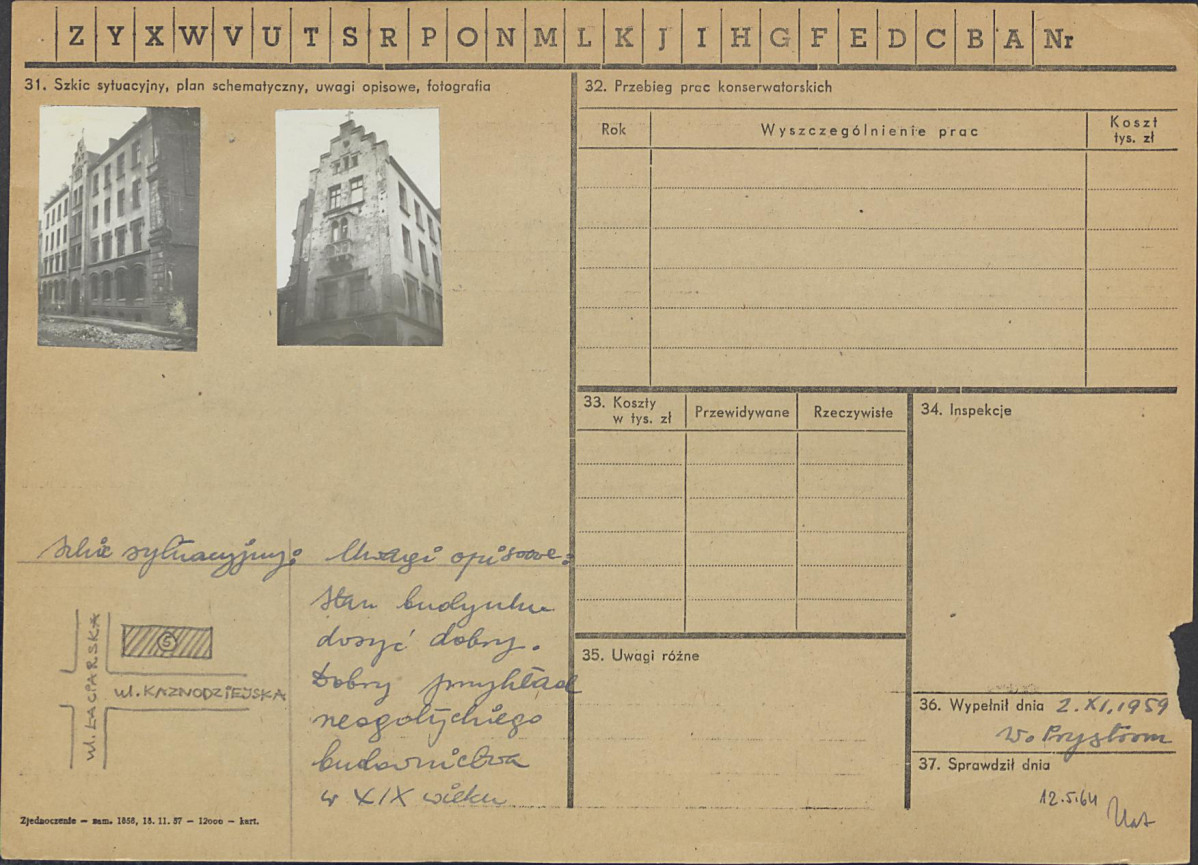 Z Y X W V U T S R P O N M L K J I H G F E D C B A Nr
31. Szkic sytuacyjny, plan schematyczny, uwagi opisowe, fotografia
szkic sytuacyjny:
ul. ŁACIARSKA
5
ul. KAZNODZIEJSKA
Uwagi opisowe:
stan budynku
dosyć dobry.
Dobry przykład
neogotyckiego
budownictwa
w XIX wieku
Zjednoczenie — zam. 1856, 18. 11. 57 — 12000 — kart.
32. Przebieg prac konserwatorskich
Rok
Wyszczególnienie prac
Koszt
tys. zł
33. Koszty
w tys. zł
Przewidywane
Rzeczywiste
34. Inspekcje
35. Uwagi różne
36. Wypełnił dnia 2.XI.1959
37. Sprawdził dnia
12.5.64